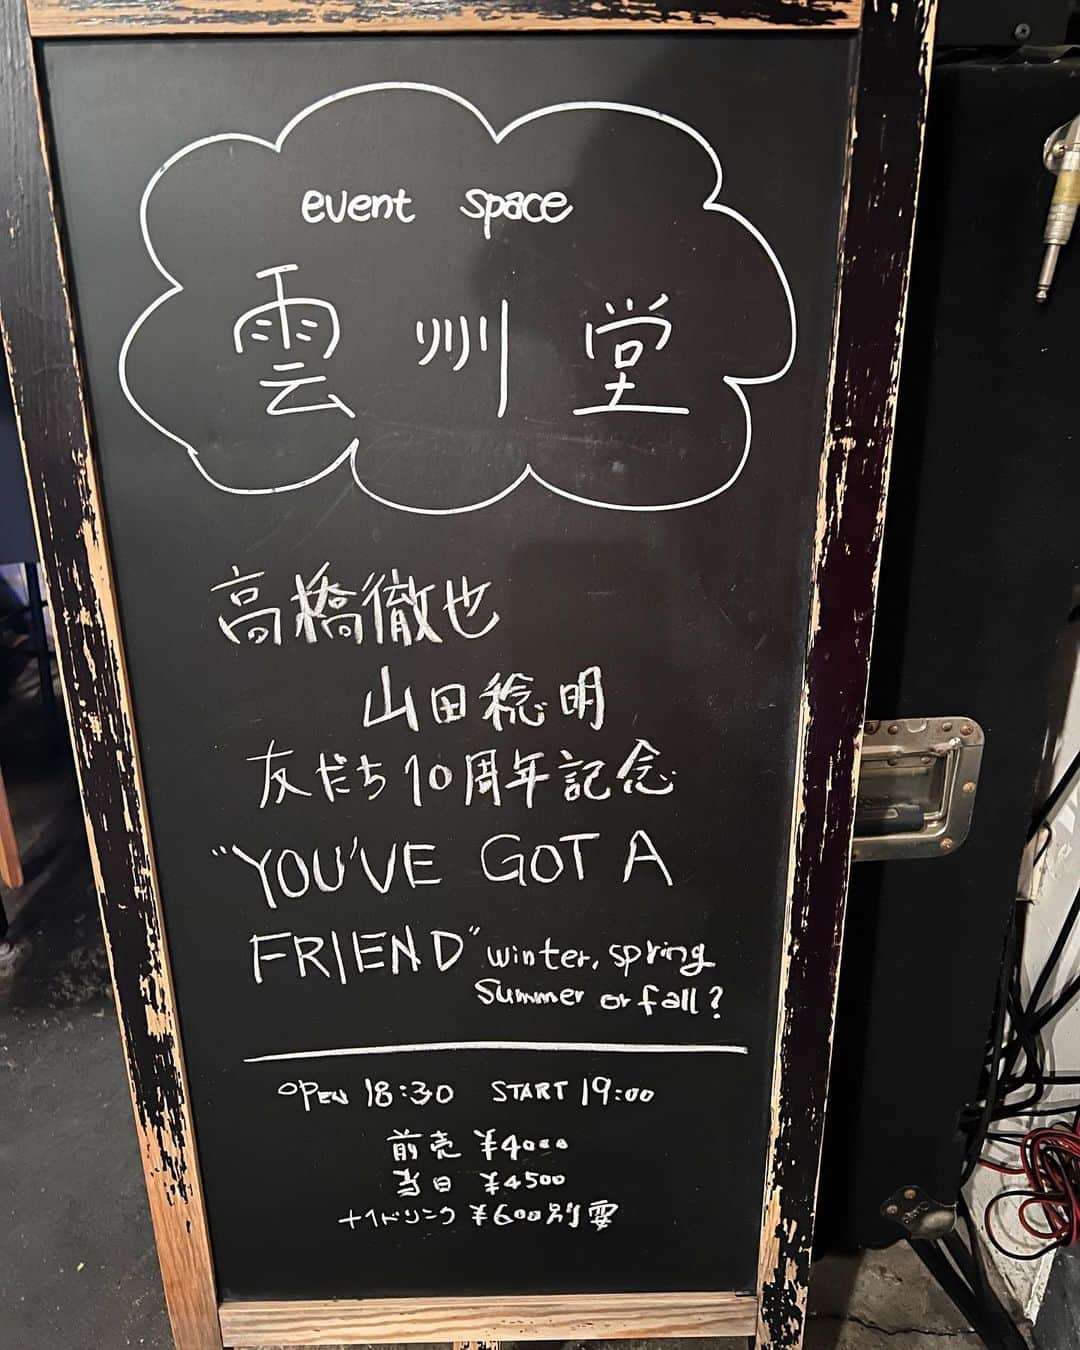 event space
雲州堂
高橋徹也
山田稔明
友だち10周年記念
"YOU'VE GOT A
FRIEND" winter, spring
summer or fall?
OPEN 18:30 START 19:00
前売 ¥4000
当日 ¥4500
+1ドリンク ¥600別要